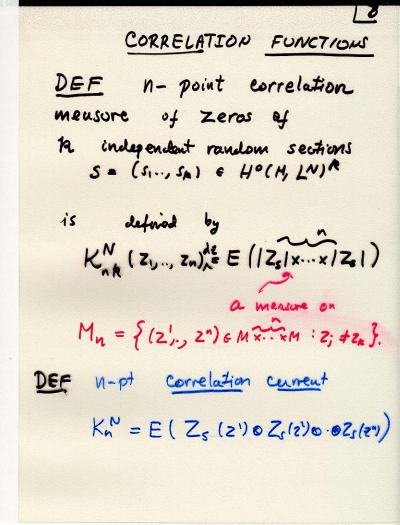 8
CORRELATION FUNCTIONS
DEF n-point correlation
measure of zeros of
k independent random sections
S = (s₁..., sₖ) ∈ H⁰(M, Lᴺ)ᵏ
is defined by
Kᴺₙₖ (z¹,..., zⁿ) dz = E (|Zₛ|x...x|Zₛ|)
n
a measure on
Mₙ = {(z¹,.., zⁿ) ∈ M x...x M : zⱼ ≠ zₖ}.
n
DEF n-pt correlation current
Kₙᴺ = E ( Zₛ (z¹) ⊗ Zₛ (z²) ⊗ ·· ⊗ Zₛ (zⁿ))